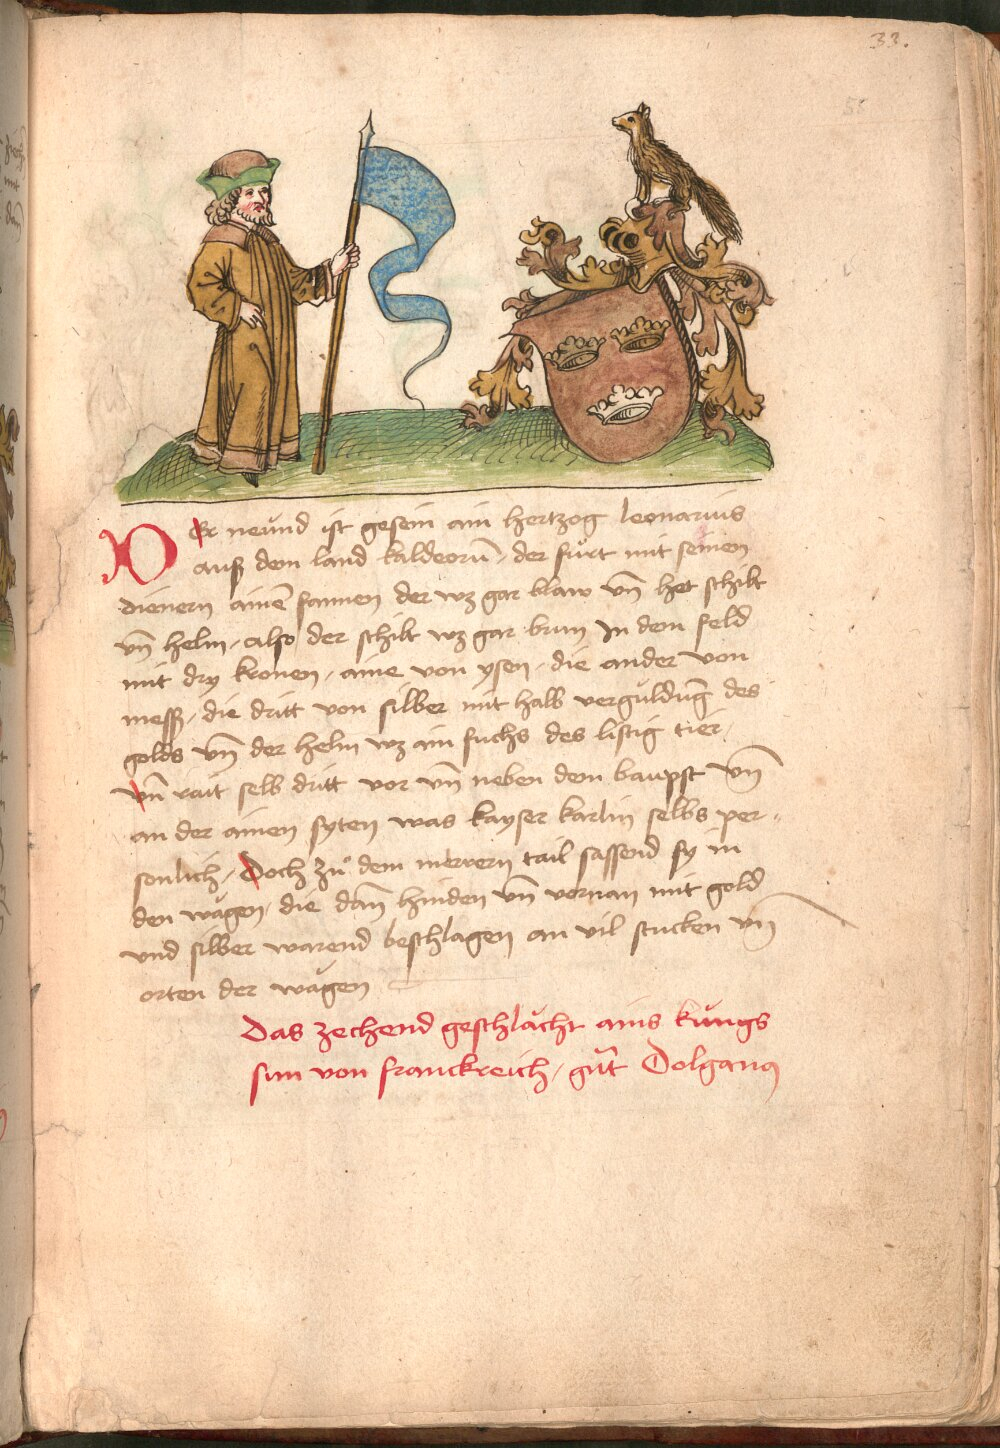 33.
Der neund ist gesein ain hertzog leonarius
auß dem land kaldeorū, der fůrt mit seinen
dienern ainē fannen der wz gar blaw vn̄ het schilt
vn̄ helm, also der schilt wz gar brun In dem feld
mit dry kronen, aine von ysen, die ander von
messz, die dritt von silber mit halb verguldūg des
golds vn̄ der helm wz ain fuchs des listig tier,
vn̄ rait selb dritt vor vn̄ neben dem baupst vn̄
an der ainen syten was kayser karlin selbs per-
sonlich, Doch zů dem merern tail sassend sy in
den wägen, die dañ hinden vn̄ vornan mit gold
vnd silber warend beschlagen an vil stucken vn̄
orten der wägen
Das zechend geschlächt ains kůngs
sun von franckreich, gūt Dolganus